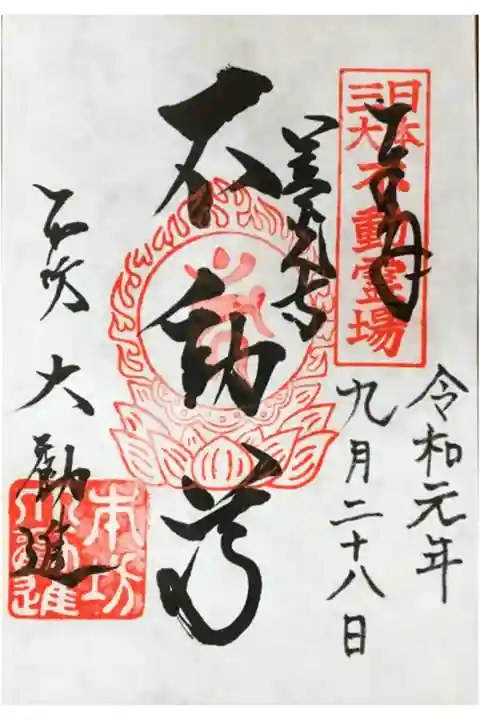 日本三大不動霊場
令和元年
九月二十八日
善光寺
不動尊
大勧進
本坊
大勧進